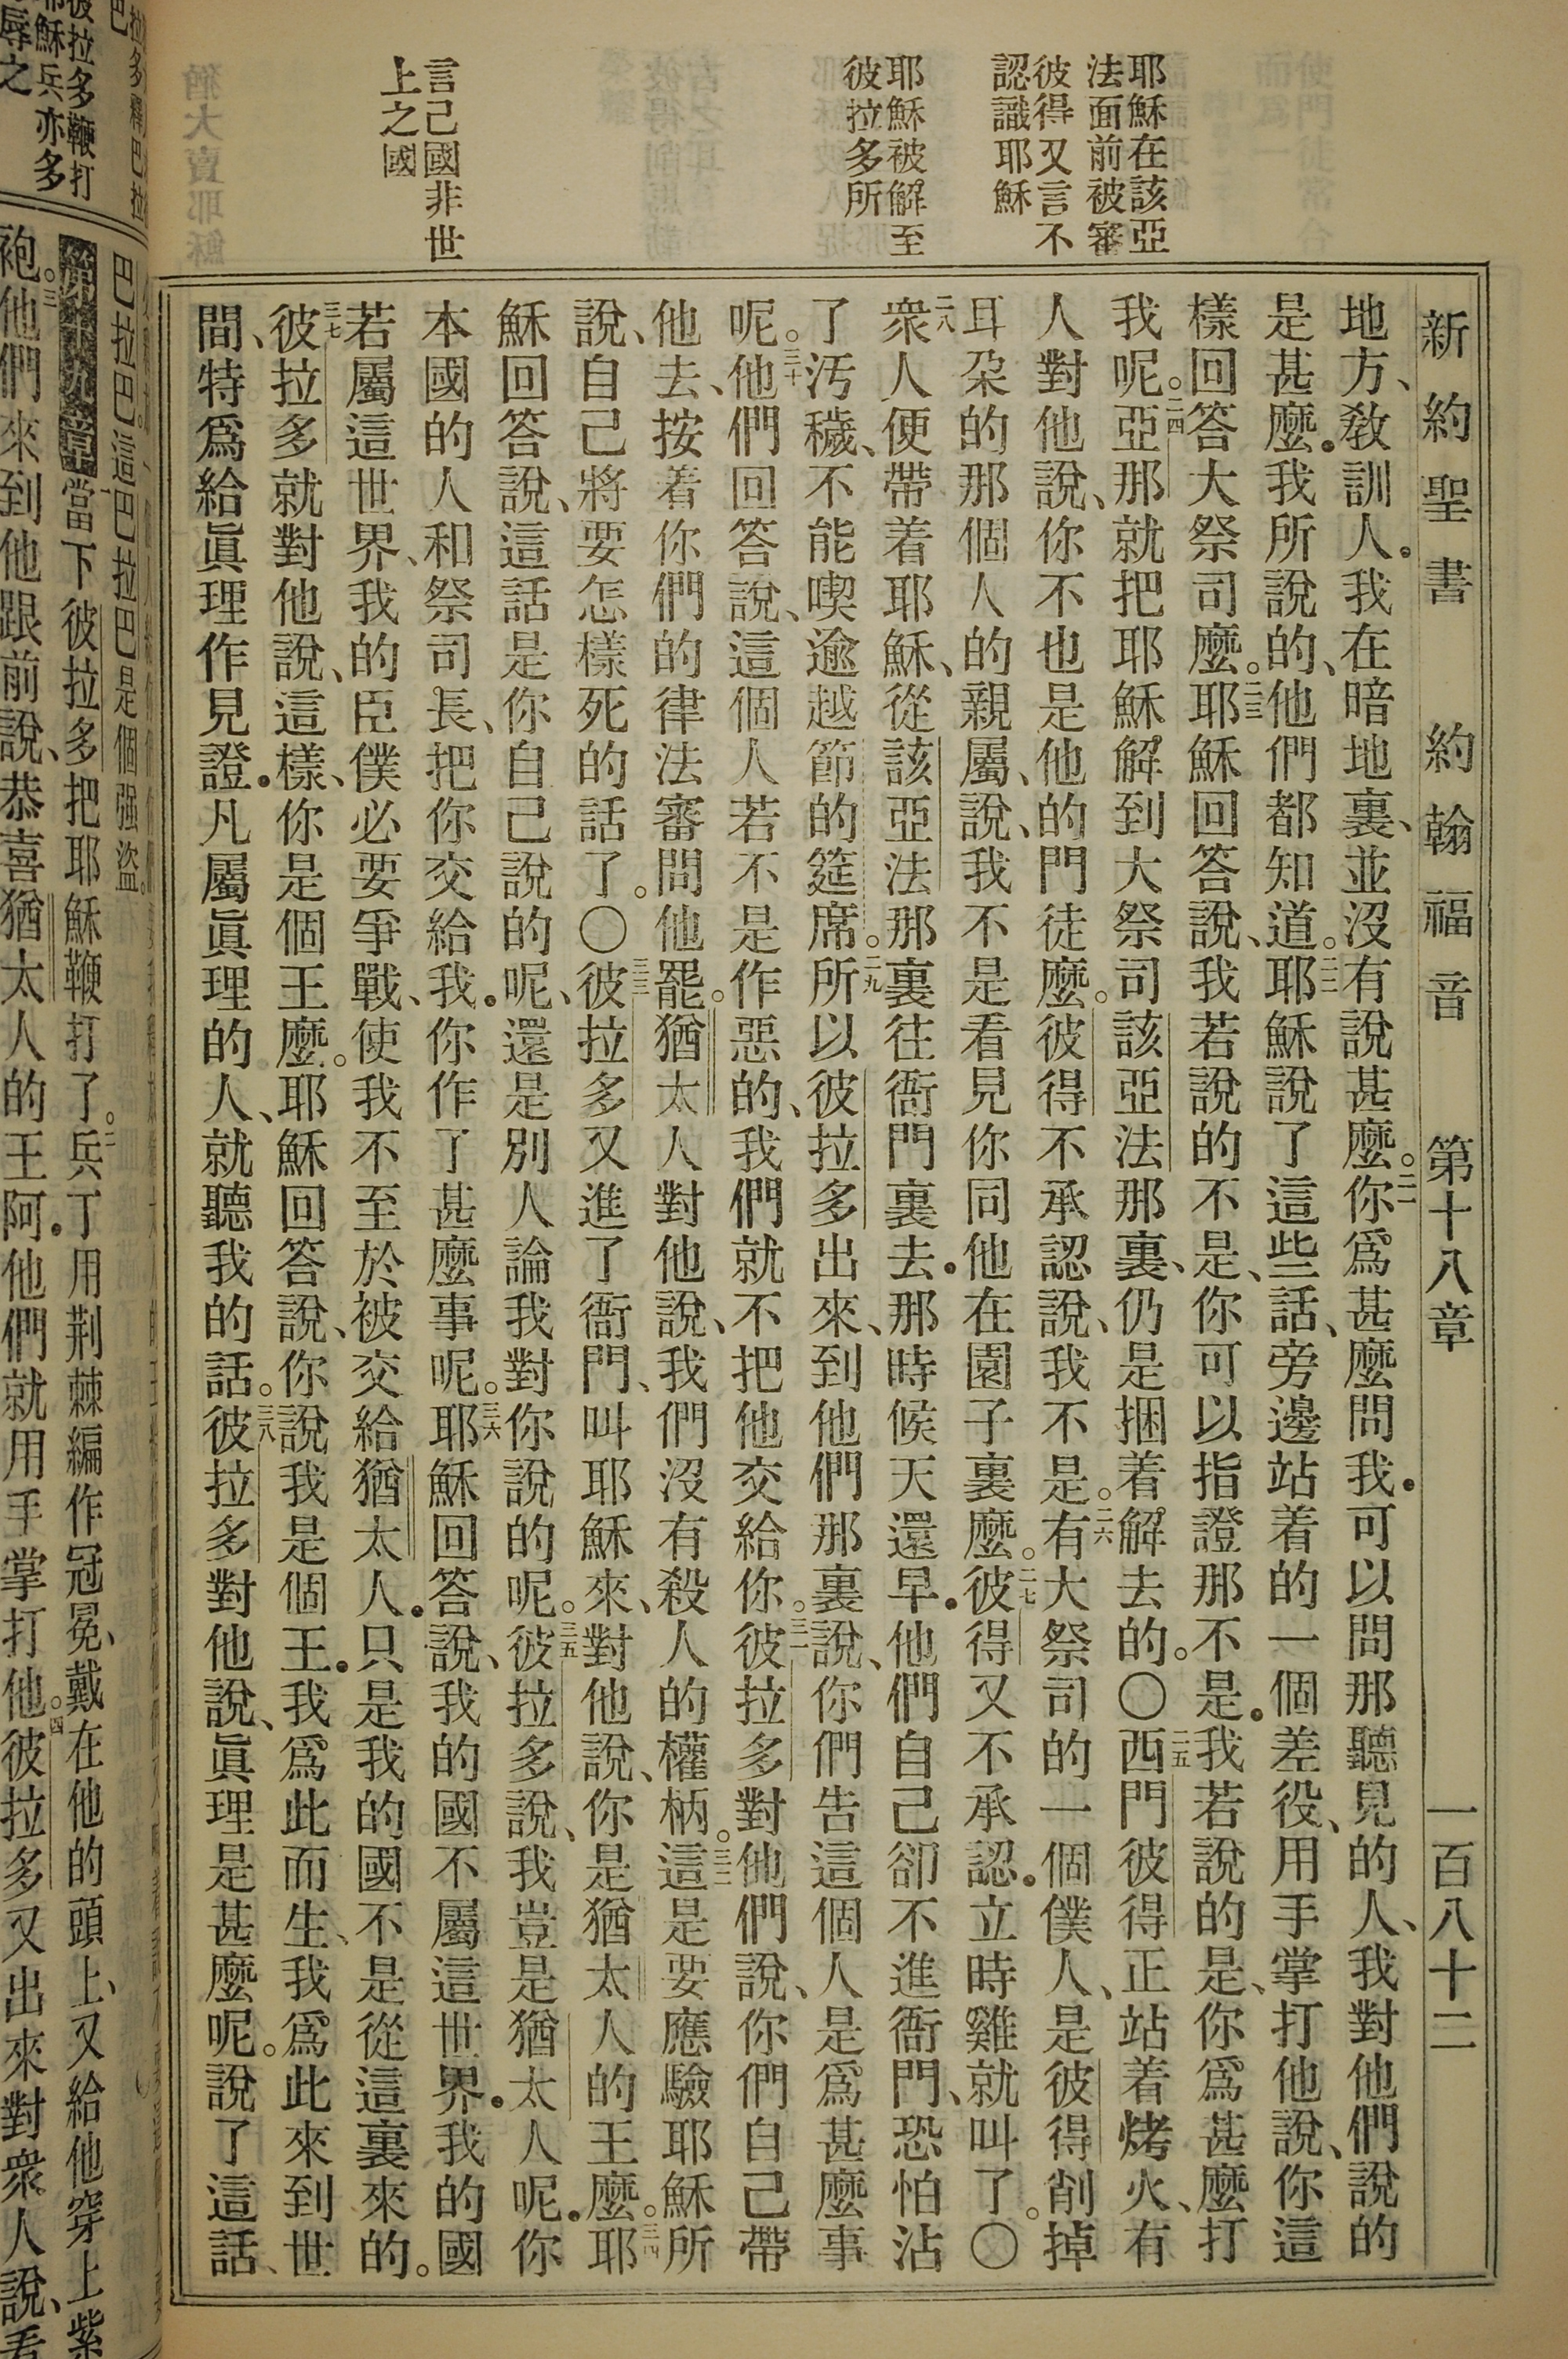 新約聖書　約翰福音　第十八章　一百八十二
耶穌在該亞
法面前被審
彼得又言不
認識耶穌
耶穌被解至
彼拉多所
言己國非世
上之國
地方、教訓人．我在暗地裏、並沒有說甚麼。二一你爲甚麼問我．可以問那聽見的人、我對他們說的
是甚麼．我所說的、他們都知道。二二耶穌說了這些話、旁邊站着的一個差役、用手掌打他說、你這
樣回答大祭司麼。二三耶穌回答說、我若說的不是、你可以指證那不是．我若說的是、你爲甚麼打
我呢。二四亞那就把耶穌解到大祭司該亞法那裏、仍是捆着解去的。〇二五西門彼得正站着烤火、有
人對他說、你不也是他的門徒麼。彼得不承認說、我不是。二六有大祭司的一個僕人、是彼得削掉
耳朶的那個人的親屬、說、我不是看見你同他在園子裏麼。二七彼得又不承認．立時雞就叫了。〇
二八衆人便帶着耶穌、從該亞法那裏往衙門裏去．那時候天還早．他們自己卻不進衙門、恐怕沾
了汚穢、不能喫逾越節的筵席。二九所以彼拉多出來、到他們那裏說、你們告這個人是爲甚麼事
呢。三十他們回答說、這個人若不是作惡的、我們就不把他交給你。三一彼拉多對他們說、你們自己帶
他去、按着你們的律法審問他罷。猶太人對他說、我們沒有殺人的權柄。三二這是要應驗耶穌所
說、自己將要怎樣死的話了。〇三三彼拉多又進了衙門、叫耶穌來、對他說、你是猶太人的王麼。三四耶
穌回答說、這話是你自己說的呢、還是別人論我對你說的呢。三五彼拉多說、我豈是猶太人呢．你
本國的人和祭司長、把你交給我．你作了甚麼事呢。三六耶穌回答說、我的國不屬這世界．我的國
若屬這世界、我的臣僕必要爭戰、使我不至於被交給猶太人．只是我的國不是從這裏來的。
三七彼拉多就對他說、這樣、你是個王麼。耶穌回答說、你說我是個王．我爲此而生、我爲此來到世
間、特爲給眞理作見證．凡屬眞理的人、就聽我的話。三八彼拉多對他說、眞理是甚麼呢。說了這話、
彼拉多鞭打
耶穌兵亦多
辱之
巴拉巴。這巴拉巴是個强盜。
當下彼拉多把耶穌鞭打了。二兵丁用荆棘編作冠冕、戴在他的頭上、又給他穿上紫
袍。三他們來到他跟前說、恭喜猶太人的王阿．他們就用手掌打他。四彼拉多又出來對衆人說、看